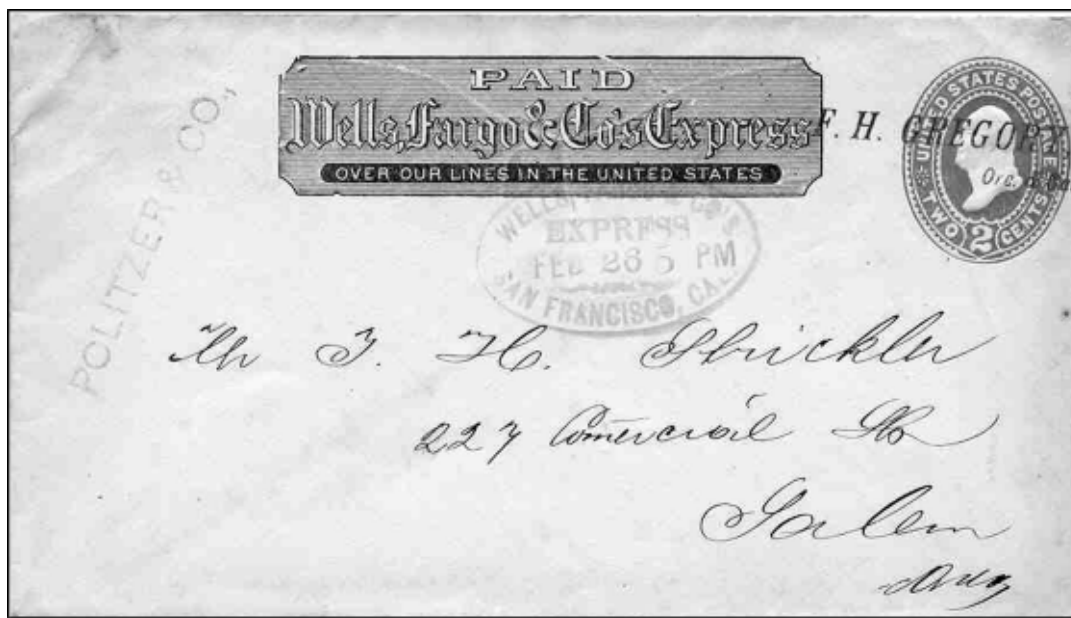 PAID
Wells, Fargo & Co's Express
OVER OUR LINES IN THE UNITED STATES
F. H. GREGORY,
UNITED STATES POSTAGE
TWO 2 CENTS
POLITZER & CO,
WELLS, FARGO & CO'S
EXPRESS
FEB 26 5 PM
SAN FRANCISCO, CAL
Mr T. H. Strickler
227 Comercial St
Salem